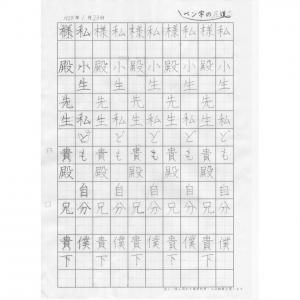 ペン字の
私 小生 私ども 自分 僕
様 殿 先生 貴殿 兄 貴下
私 小生 私ども 自分 僕
様 殿 先生 貴殿 兄 貴下
私 小生 私ども 自分 僕
様 殿 先生 貴殿 兄 貴下
私 小生 私ども 自分 僕
様 殿 先生 貴殿 兄 貴下